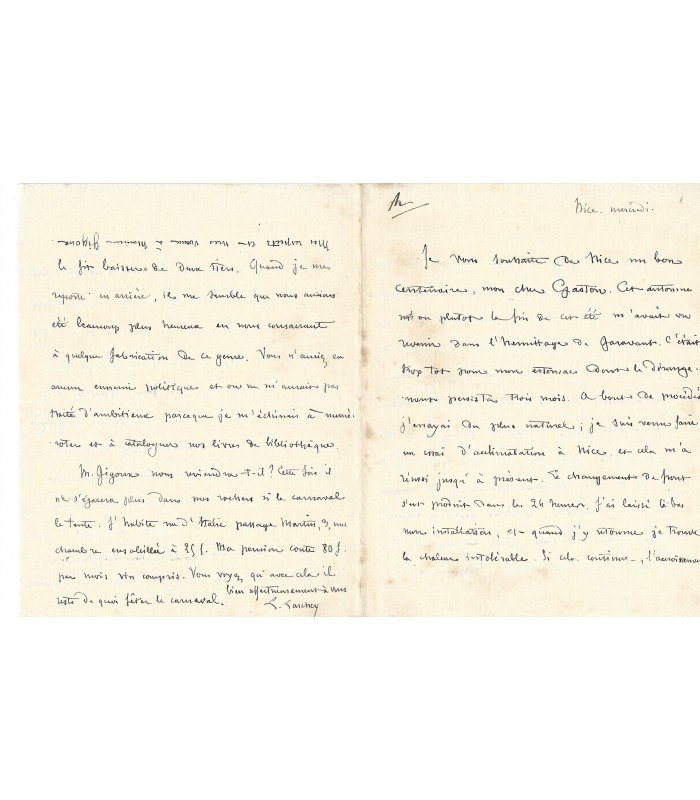 Nice. mercredi.
Je vous souhaite de Nice un bon
centenaire, mon cher Gaston. Cet automne
ou plutot la fin de cet été m'avait vu
revenir dans l'hermitage de Garavant. C'était
trop tot pour mon estomac dont le dérange-
-ment persista trois mois. A bout de procédés
j'essayai du plus naturel ; je suis venu faire
un essai d'acclimatation à Nice et cela m'a
réussi jusqu'à présent. Le changement de front
s'est produit dans les 24 heures. J'ai laissé là bas
mon installation, et quand j'y retourne je trouve
la chaleur intolérable. Si cela continue,
le fit baisser de deux tiers. Quand je me
reporte en arrière, il me semble que nous aurions
été beaucoup plus heureux en nous consacrant
à quelque fabrication de ce genre. Vous n'auriez eu
aucun ennemi politique et on ne m'aurait pas
traité d'ambitieux parceque je m'échinais à numé-
-roter et à cataloguer nos livres de bibliothèque.
M. Gigoux nous reviendra-t-il ? Cette fois il
ne s'égarera plus dans mes rochers si le carnaval
le tente. J'habite rue d'Italie passage Martin, 3, une
chambre ensoleillée à 25 f. Ma pension coute 80 f.
par mois vin compris. Vous voyez qu'avec cela il
reste de quoi fêter le carnaval.
bien affectueusement à vous
L. Larchey
Mes respects et mes vœux à Monsieur Gigoux.